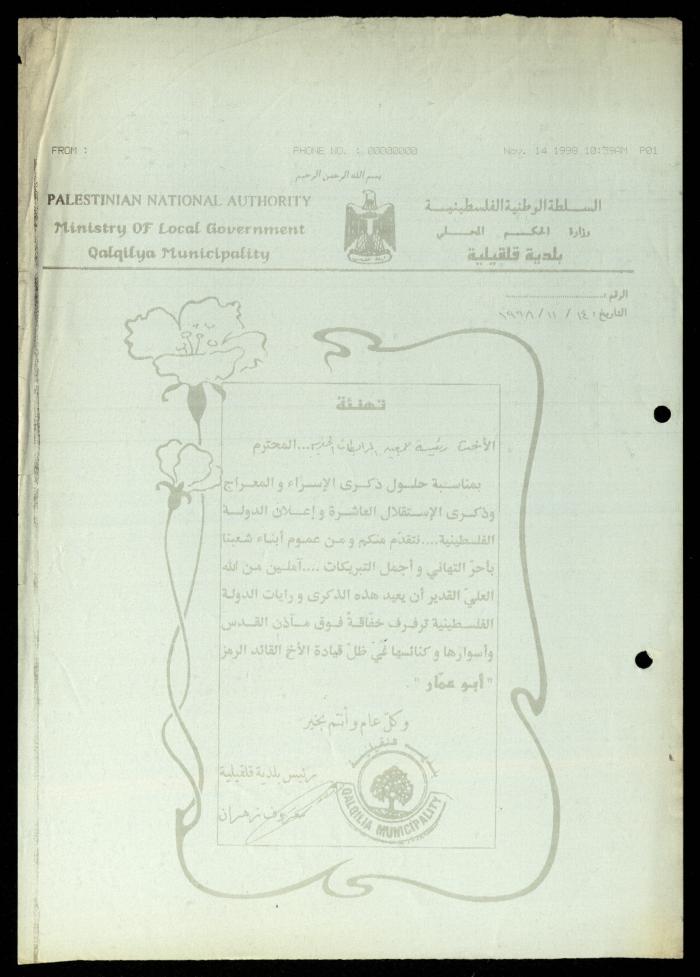 FROM : PHONE NO. : 00000000 Nov. 14 1998 10:39AM P01
بسم الله الرحمن الرحيم
PALESTINIAN NATIONAL AUTHORITY
Ministry OF Local Government
Qalqilya Municipality
السلطة الوطنية الفلسطينية
وزارة الحكم المحلي
بلدية قلقيلية
الرقم :
التاريخ : ١٤ / ١١ / ١٩٩٨
تهنئة
الأخت رئيسة ... المحترم
بمناسبة حلول ذكرى الإسراء و المعراج
وذكرى الإستقلال العاشرة و إعلان الدولة
الفلسطينية .... نتقدّم منكم و من عموم أبناء شعبنا
بأحرّ التهاني و أجمل التبريكات .... آملين من الله
العليّ القدير أن يعيد هذه الذكرى و رايات الدولة
الفلسطينية ترفرف خفّاقةً فوق مآذن القدس
وأسوارها و كنائسها في ظلّ قيادة الأخ القائد الرمز
" أبو عمّار " .
و كلّ عام و أنتم بخير
رئيس بلدية قلقيلية
معروف زهران
بلدية قلقيلية
QALQILIA MUNICIPALITY